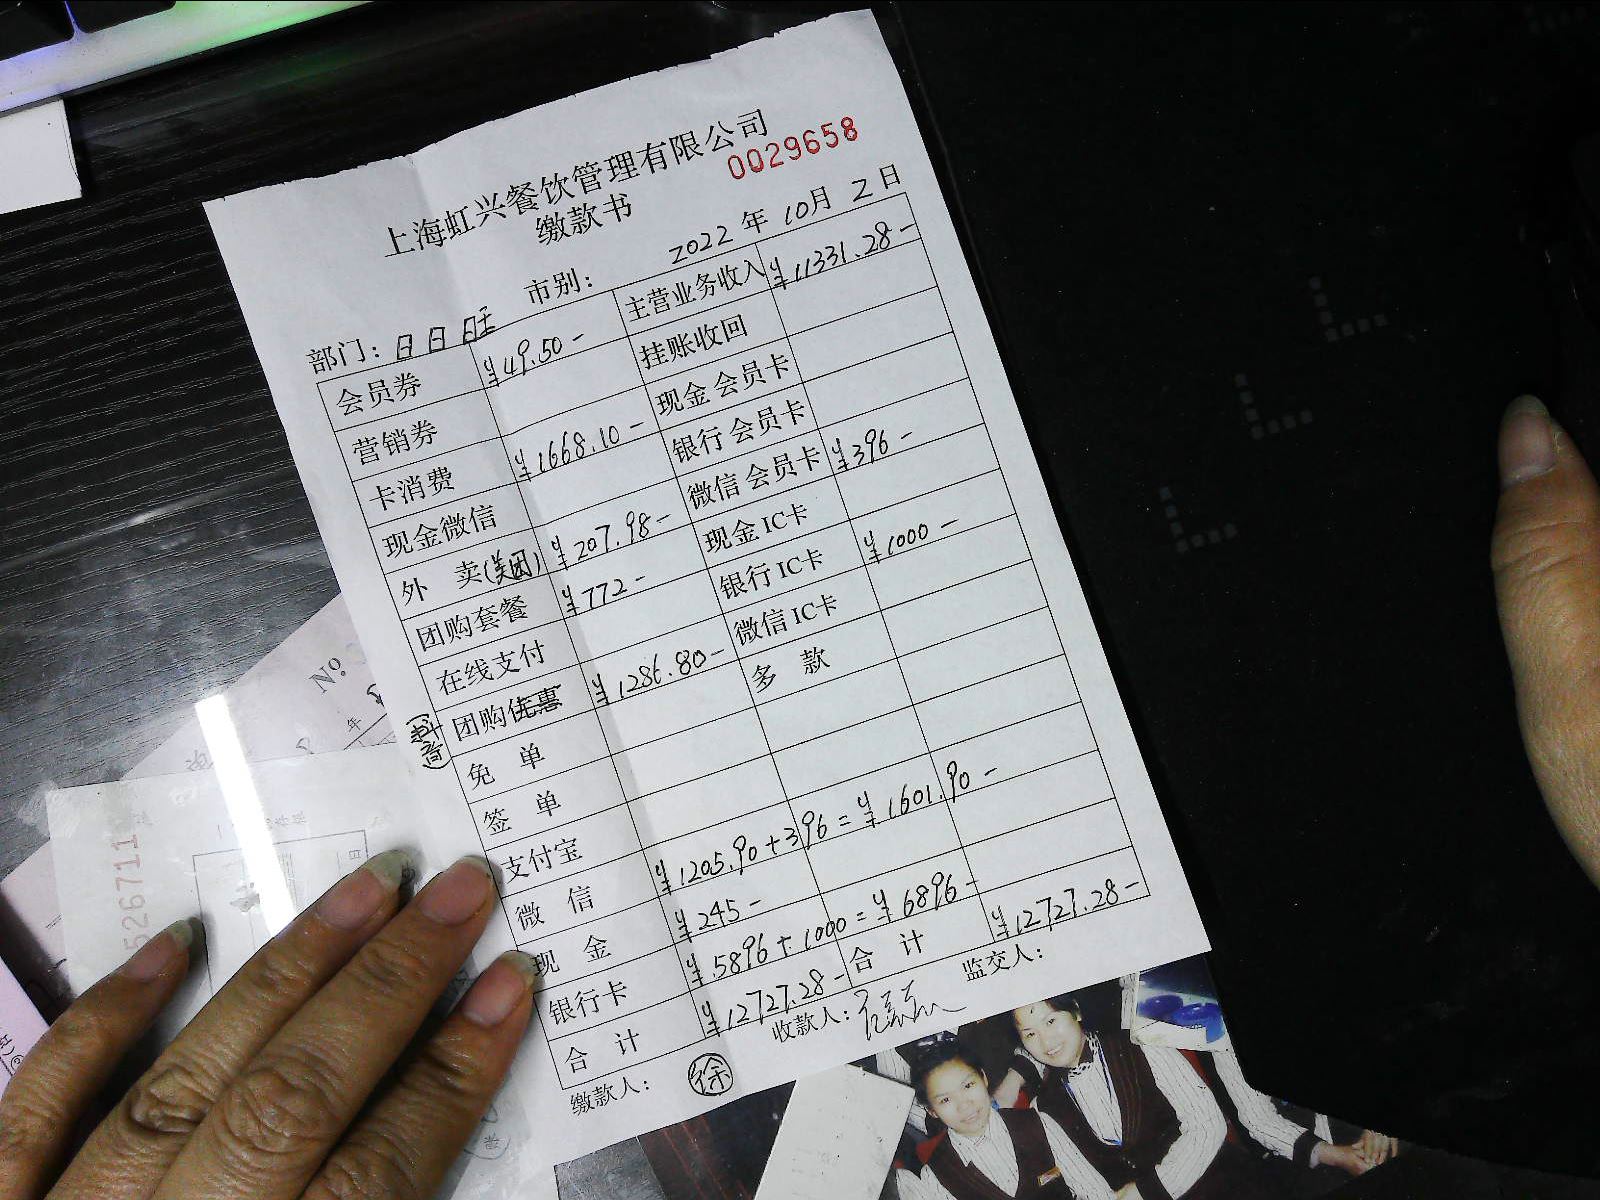 上海虹兴餐饮管理有限公司
缴款书
0029658
部门：日日旺 市别： 2022 年 10月 2 日
会员券 ¥49.50- 主营业务收入 ¥11331.28-
营销券 挂账收回
卡消费 ¥1668.10- 现金会员卡
现金微信 银行会员卡
外 卖(美团) ¥207.98- 微信会员卡 ¥396-
团购套餐 ¥772- 现金IC卡
在线支付 银行IC卡 ¥1000-
团购优惠 ¥1286.80- 微信IC卡
免 单 多 款
签 单
支付宝
微 信 ¥1205.90+396=¥1601.90-
现 金 ¥245-
银行卡 ¥5896+1000=¥6896-
合 计 ¥12727.28- 合 计 ¥12727.28-
缴款人： 徐 收款人： 监交人：
Nº
年
526711